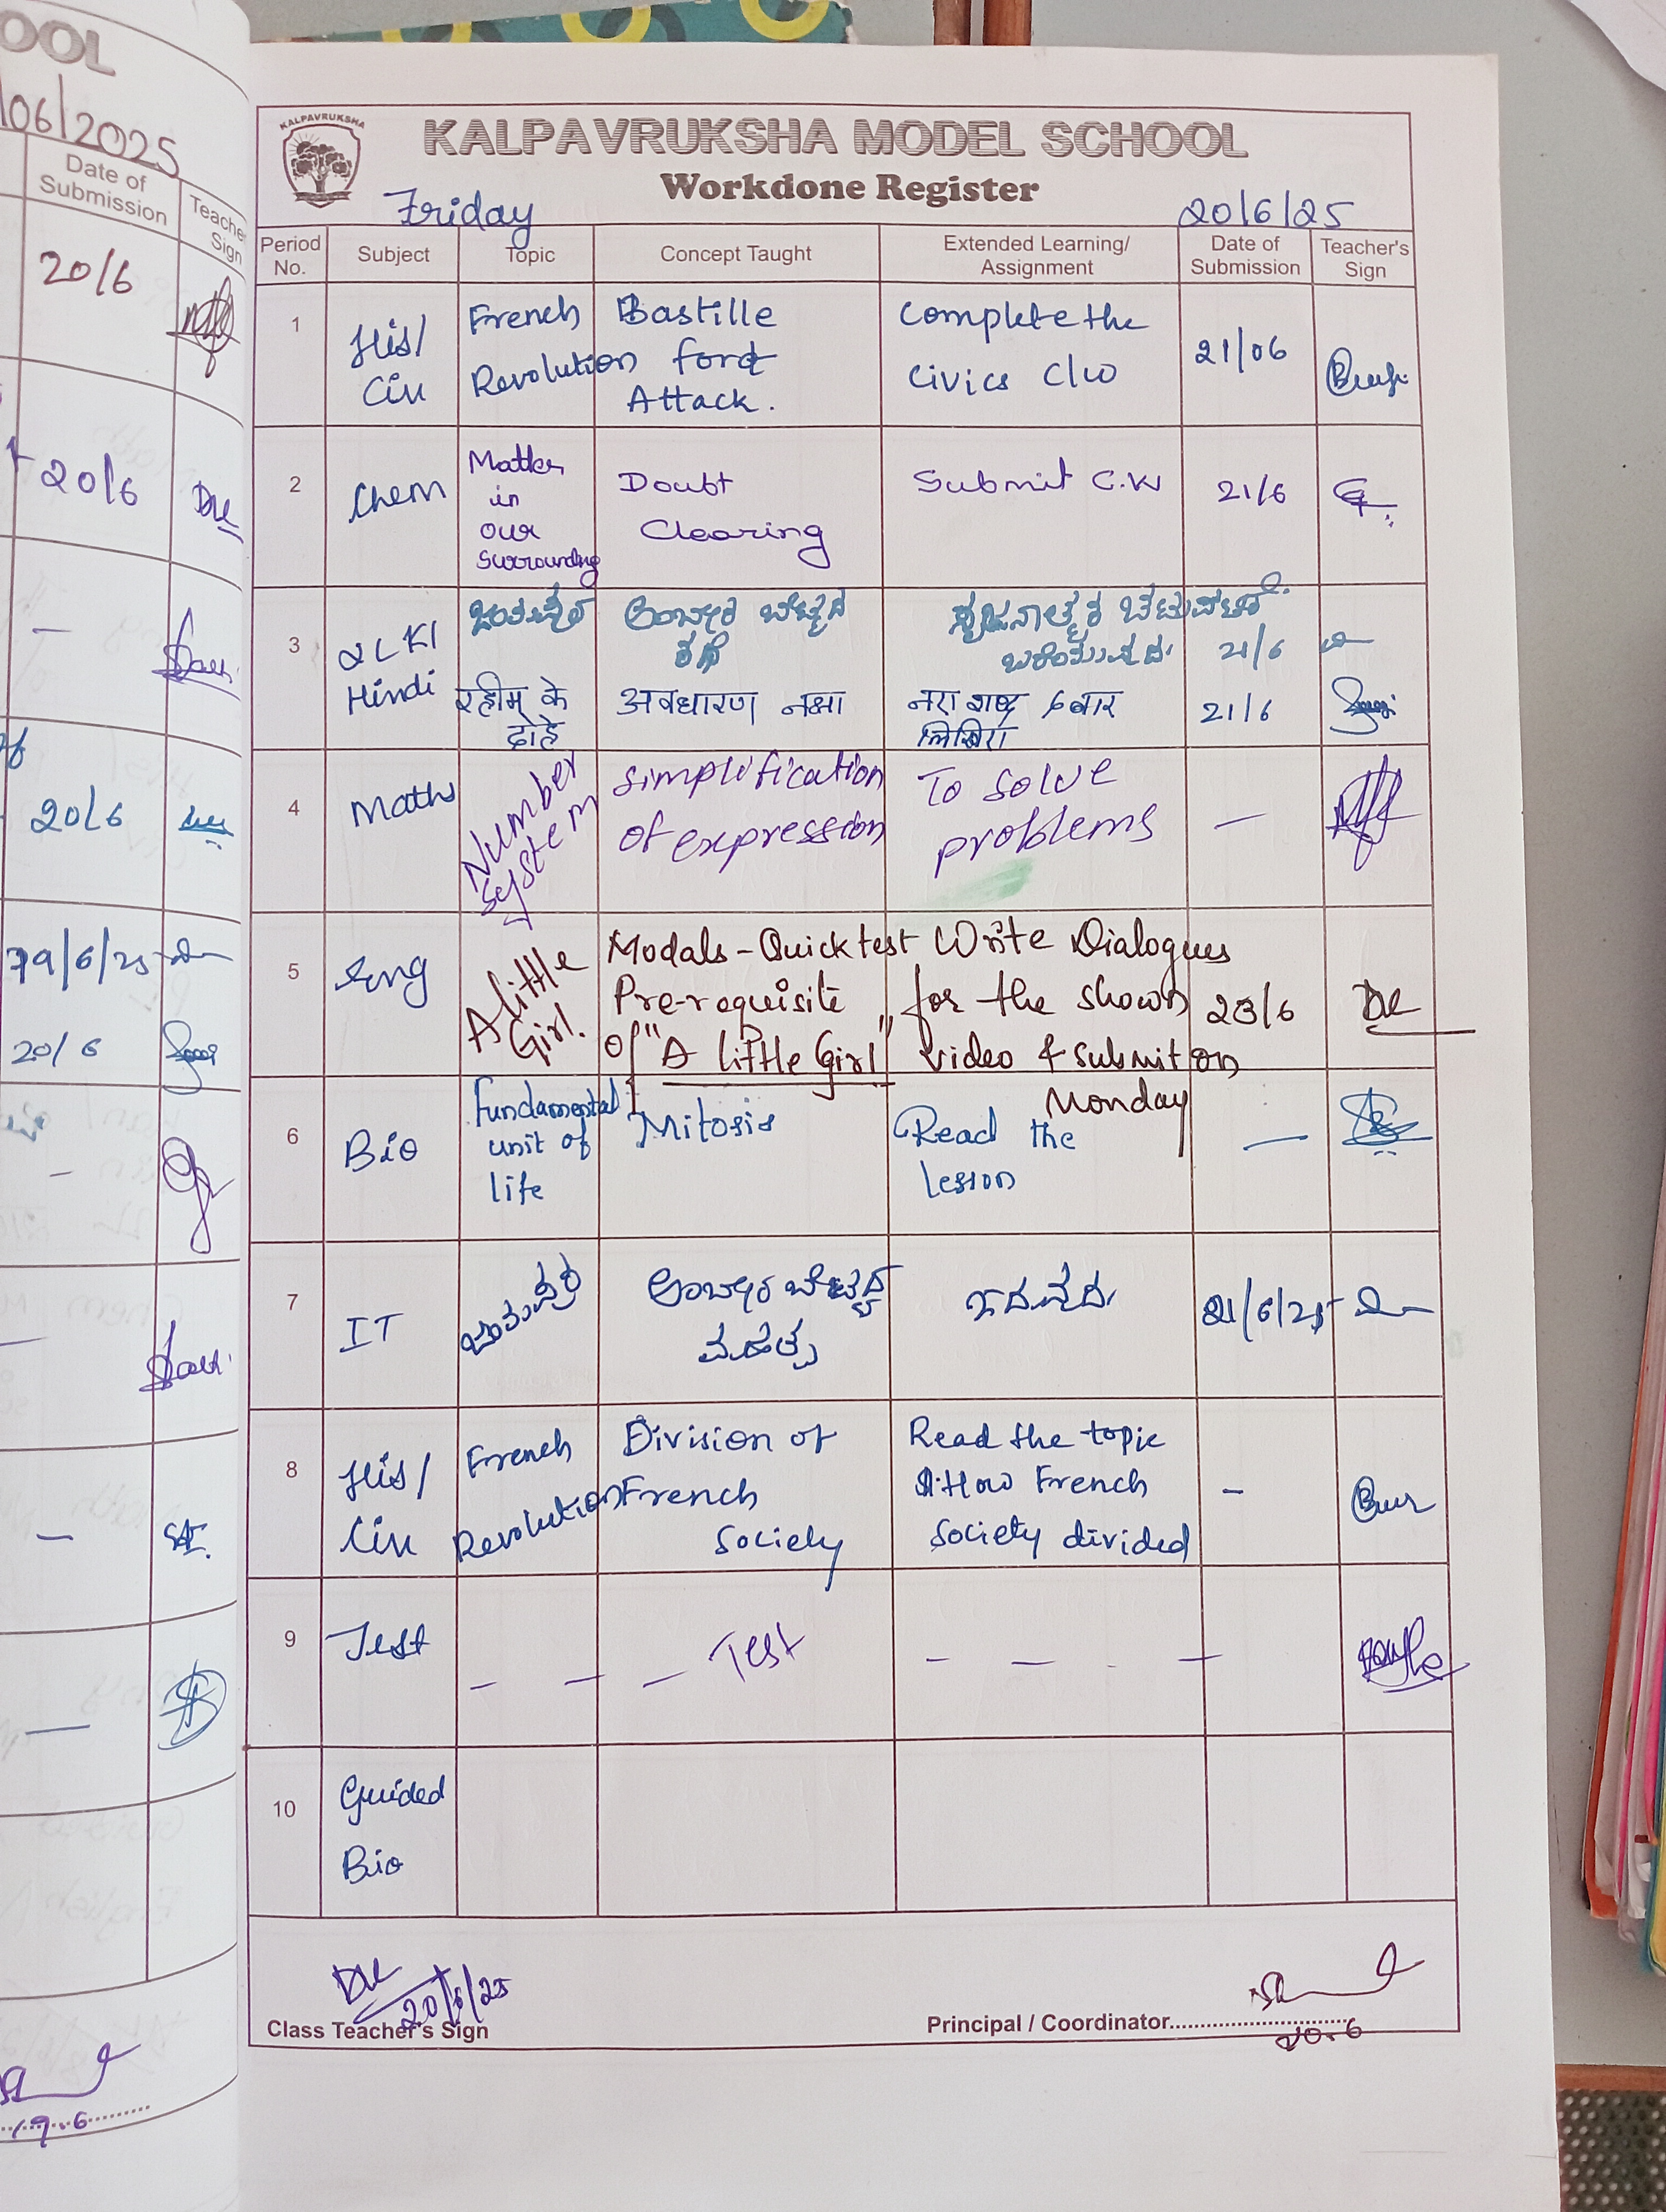 OOL
/06/2025
Date of
Submission
Teache
Sign
20/6
20/6
—
20/6
19/6/25
20/6
-
—
—
19.6
KALPAVRUKSHA
KALPAVRUKSHA MODEL SCHOOL
Workdone Register
Friday
20/6/25
Period
No.
Subject
Topic
Concept Taught
Extended Learning/
Assignment
Date of
Submission
Teacher's
Sign
1
His/
Civ
French
Revolution
Bastille
Ford
Attack.
Complete the
Civics C/W
21/06
2
Chem
Matter
in
our
Surrounding
Doubt
Clearing
Submit C.W
21/6
3
2L Kl
Hindi
ಕಥೆ
21/6
रहीम के
दोहे
अवधारण नक्षा
लिखिए
21/6
4
Maths
Number
System
Simplification
of expression
To solve
problems
—
5
Eng
A little
Girl.
Modals - Quick test
Pre-requisite
of "A little Girl"
Write Dialogues
for the shown
video & submit on
Monday
23/6
6
Bio
Fundamental
unit of
life
Mitosis
Read the
lesson
—
7
IT
ಮಹತ್ವ
21/6/25
8
His/
Civ
French
Revolution
Division of
French
Society
Read the topic
How French
Society divided
-
9
Test
- — — Test - — - —
10
Guided
Bio
20/6/25
Class Teacher's Sign
Principal / Coordinator
20.6